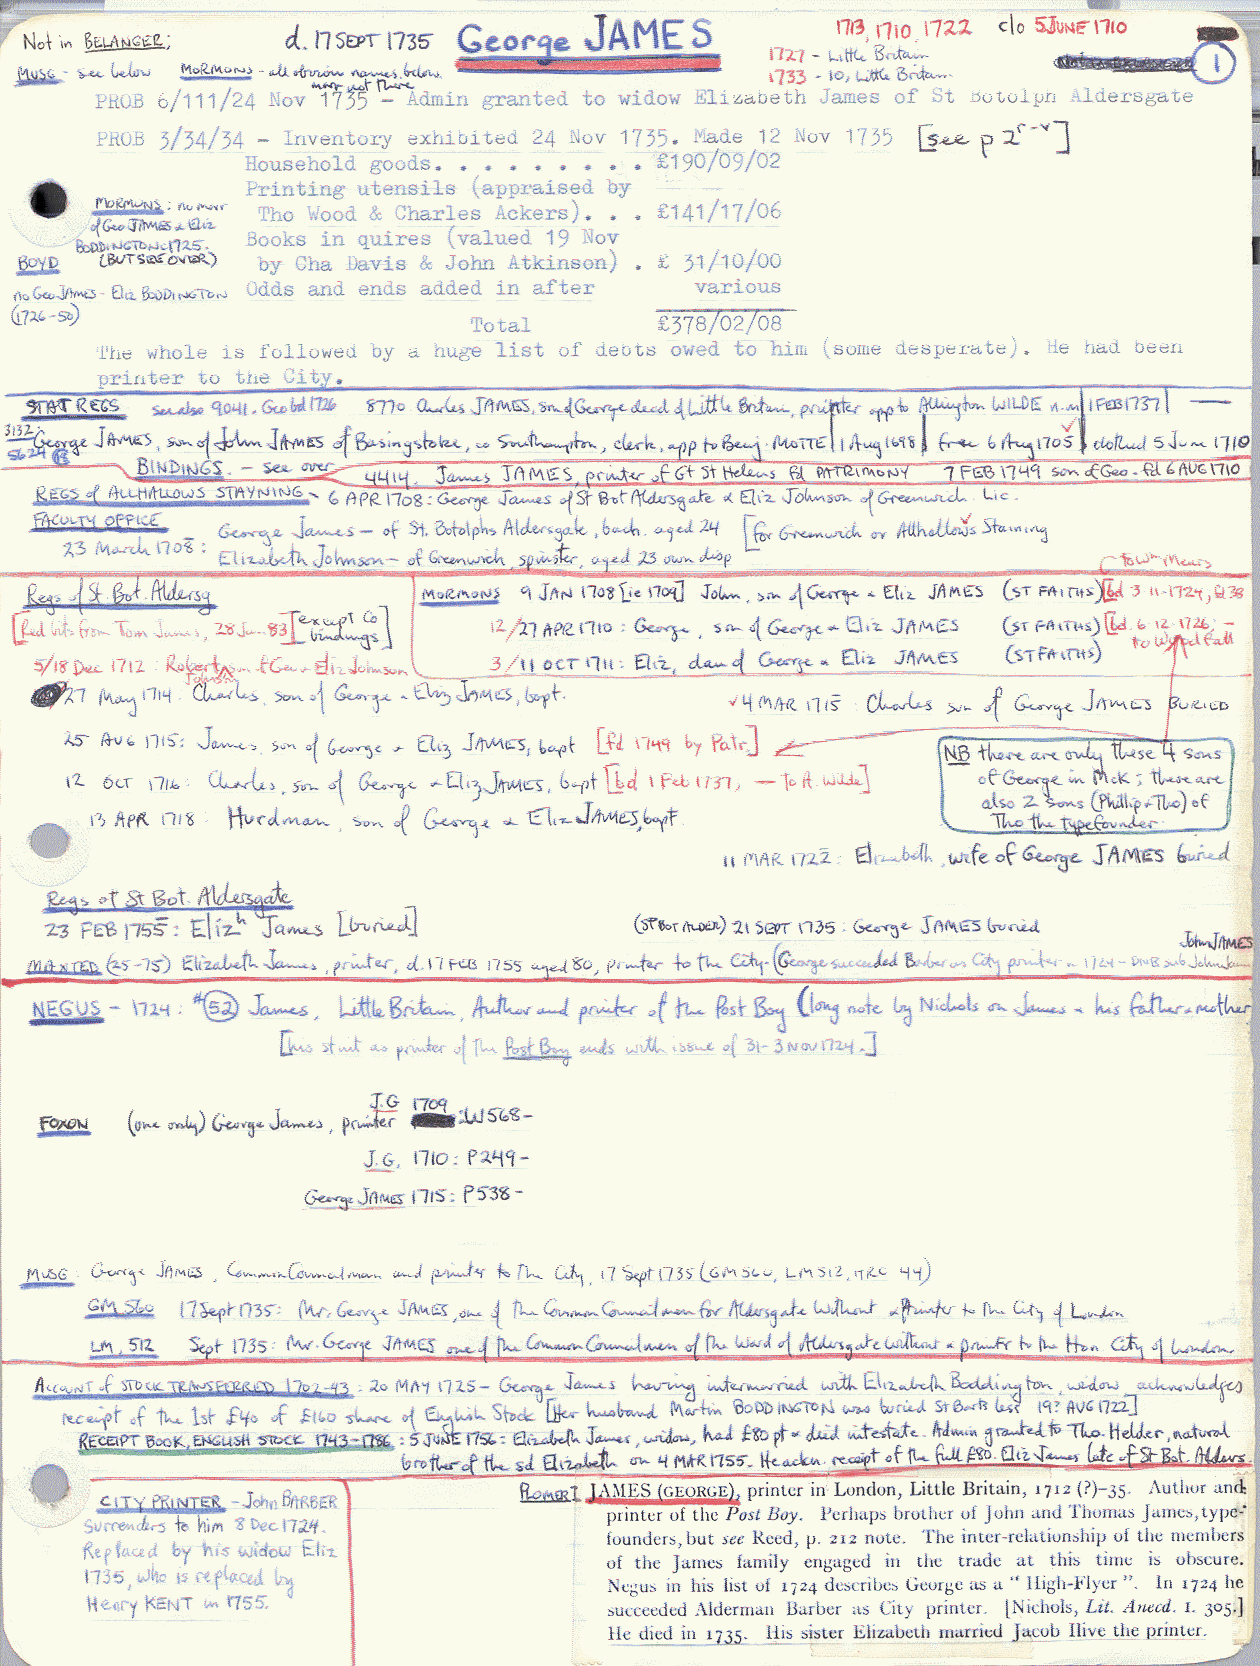 Not in BELANGER; d. 17 SEPT 1735 George JAMES 1713, 1710, 1722 c/o 5 JUNE 1710
1727 - Little Britain
1733 - 10, Little Britain
1
MUSG - see below MORMONS - all obvious names below
PROB 6/111/24 Nov 1735 - Admin granted to widow Elizabeth James of St Botolph Aldersgate
PROB 3/34/34 - Inventory exhibited 24 Nov 1735. Made 12 Nov 1735 [see p 2r-v]
Household goods. . . . . . . . . £190/09/02
Printing utensils (appraised by
Tho Wood & Charles Ackers). . . £141/17/06
Books in quires (valued 19 Nov
by Cha Davis & John Atkinson) . £ 31/10/00
Odds and ends added in after various
Total £378/02/08
MORMONS: no marr
of Geo JAMES & Eliz
BODDINGTON 1725.
(BUT SEE OVER)
BOYD
no Geo JAMES - Eliz BODDINGTON
(1726-50)
The whole is followed by a huge list of debts owed to him (some desperate). He had been
printer to the City.
STAT REGS see also 9041. Geo bd 1726 8770 Charles JAMES, son of George decd of Little Britain, printer app to Allington WILDE n.m. 1 FEB 1737
3132 George JAMES, son of John JAMES of Basingstoke, co Southampton, clerk, app to Benj. MOTTE 1 Aug 1698 free 6 Aug 1705 clothed 5 June 1710
5624
BINDINGS - see over 4414. James JAMES, printer of Gt St Helens fd PATRIMONY 7 FEB 1749 son of Geo - fd 6 AUG 1710
REGS of ALLHALLOWS STAYNING - 6 APR 1708: George James of St Bot Aldersgate & Eliz Johnson of Greenwich. Lic.
FACULTY OFFICE
23 March 1708: George James - of St. Botolphs Aldersgate, bach. aged 24 [for Greenwich or Allhallows Staining
Elizabeth Johnson - of Greenwich, spinster, aged 23 own disp
Regs of St. Bot. Aldersg
[Red bits from Tom James, 28 Jan. 83] [except Co bindings]
to Wm Mears
MORMONS 9 JAN 1708 [ie 1709] John, son of George & Eliz JAMES (ST FAITHS) [bd 3 11-1724, 38
12/27 APR 1710: George, son of George & Eliz JAMES (ST FAITHS) [bd. 6.12.1726; -
to Wood fall
3/11 OCT 1711: Eliz, dau of George & Eliz JAMES (ST FAITHS)
5/18 Dec 1712: Robert son of Geo & Eliz Johnson
Johnson
27 May 1714. Charles, son of George & Eliz JAMES, bapt. 4 MAR 1715: Charles son of George JAMES BURIED
25 AUG 1715: James, son of George & Eliz JAMES, bapt [fd 1749 by Patr.]
12 OCT 1716: Charles, son of George & Eliz JAMES, bapt [bd 1 Feb 1737, - To A. Wilde]
13 APR 1718: Hurdman, son of George & Eliz JAMES, bapt
NB there are only these 4 sons
of George in McK; there are
also 2 sons (Phillip & Tho) of
Tho the typefounder.
11 MAR 1722: Elizabeth, wife of George JAMES buried
Regs of St Bot. Aldersgate
23 FEB 1755: Elizh James [buried] (ST BOT ALDER) 21 SEPT 1735: George JAMES buried
John JAMES
MAXTED (25-75) Elizabeth James, printer, d. 17 FEB 1755 aged 80, printer to the City. (George succeeded Barber as City printer in 1724 - DNB sub John Jam
NEGUS - 1724: #52 James, Little Britain, Author and printer of the Post Boy (long note by Nichols on James & his father & mother
[his stint as printer of the Post Boy ends with issue of 31-3 NOV 1724.]
FOXON (one only) George James, printer J.G 1709 : W568-
J.G, 1710: P249-
George JAMES 1715: P538-
MUSG: George JAMES, Common Councilman and printer to the City, 17 Sept 1735 (GM 560, LM 512, HRC 44)
GM 560 17 Sept 1735: Mr. George JAMES, one of the Common Councilmen for Aldersgate Without & Printer to the City of London
LM, 512 Sept 1735: Mr. George JAMES one of the Common Councilmen of the Ward of Aldersgate Without & printer to the Hon City of London
ACCOUNT of STOCK TRANSFERRED 1702-43: 20 MAY 1725 - George James having intermarried with Elizabeth Boddington, widow acknowledges
receipt of the 1st £40 of £160 share of English Stock [Her husband Martin BODDINGTON was buried St Barts less 19? AUG 1722]
RECEIPT BOOK, ENGLISH STOCK 1743-1786: 5 JUNE 1756: Elizabeth James, widow, had £80 pt & died intestate. Admin granted to Tho. Helder, natural
brother of the sd Elizabeth on 4 MAR 1755. He ackn. receipt of the full £80. Eliz James late of St Bot. Alders
CITY PRINTER - John BARBER
Surrenders to him 8 Dec 1724.
Replaced by his widow Eliz
1735, who is replaced by
Henry KENT in 1755.
PLOMER I JAMES (GEORGE), printer in London, Little Britain, 1712 (?)-35. Author and
printer of the Post Boy. Perhaps brother of John and Thomas James, type-
founders, but see Reed, p. 212 note. The inter-relationship of the members
of the James family engaged in the trade at this time is obscure.
Negus in his list of 1724 describes George as a " High-Flyer ". In 1724 he
succeeded Alderman Barber as City printer. [Nichols, Lit. Anecd. I. 305.]
He died in 1735. His sister Elizabeth married Jacob Ilive the printer.